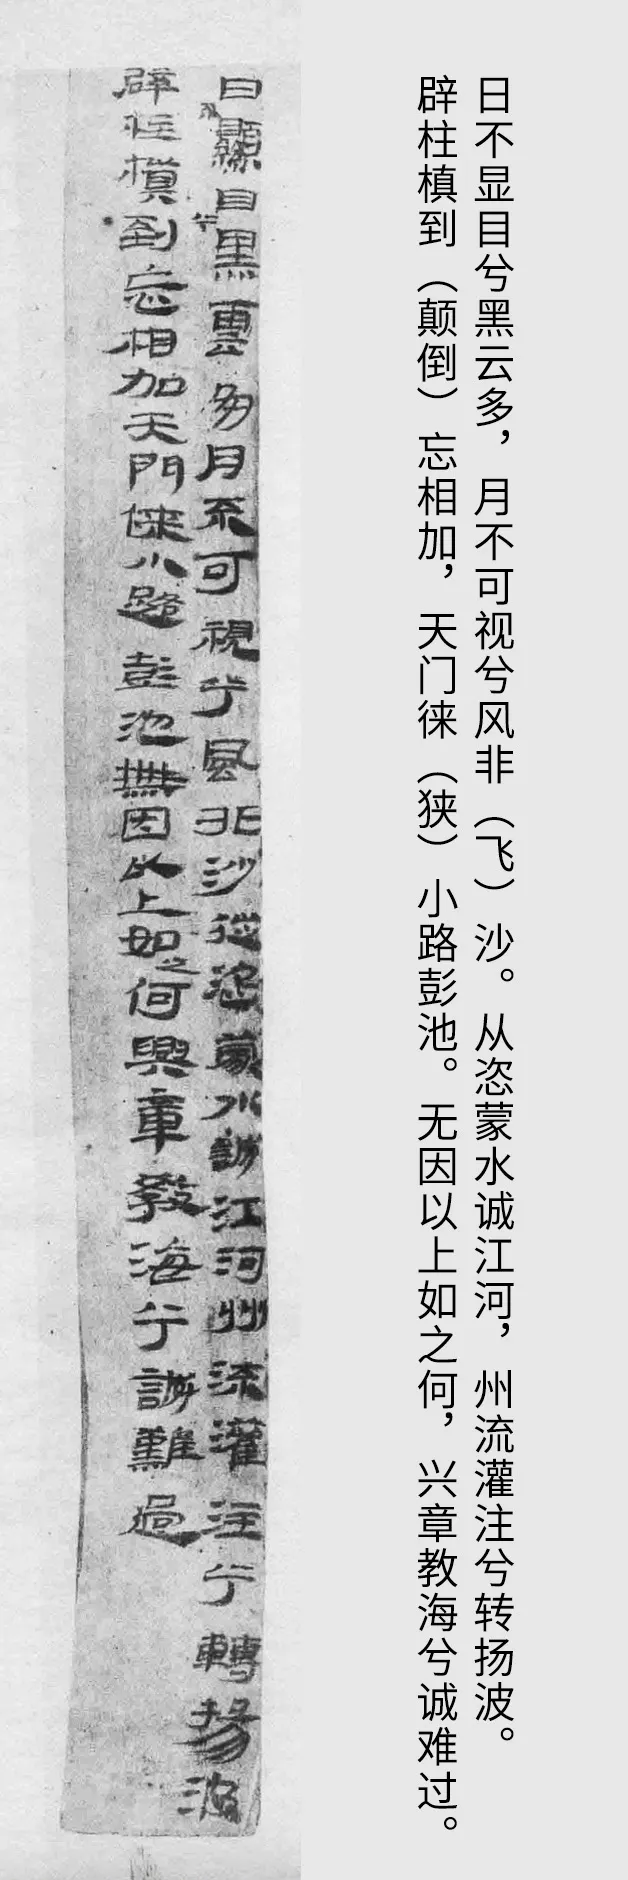 日不显目兮黑云多，月不可视兮风非（飞）沙。从恣蒙水诚江河，州流灌注兮转扬波。
辟柱槙到（颠倒）忘相加，天门徕（狭）小路彭池。无因以上如之何，兴章教海兮诚难过。
日不顯目兮黑雲多月不可視兮風非沙從恣蒙水誠江河州流灌注兮轉揚波
辟柱槙到忘相加天門俠小路彭池無因以上如之何興章教海兮誠難過